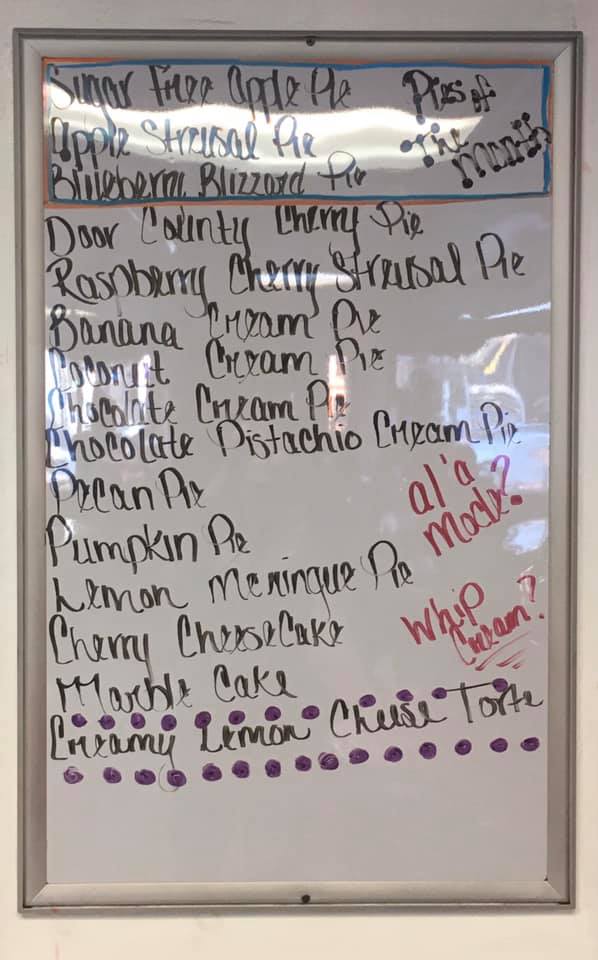 Sugar Free Apple Pie
Apple Streusal Pie
Blueberry Blizzard Pie
Pies of
the
month
Door County Cherry Pie
Raspberry Cherry Streusal Pie
Banana Cream Pie
Coconut Cream Pie
Chocolate Cream Pie
Chocolate Pistachio Cream Pie
Pecan Pie
Pumpkin Pie
Lemon Meringue Pie
Cherry CheeseCake
Marble Cake
Creamy Lemon Cheese Torte
al'a
Mode?
Whip
Cream?